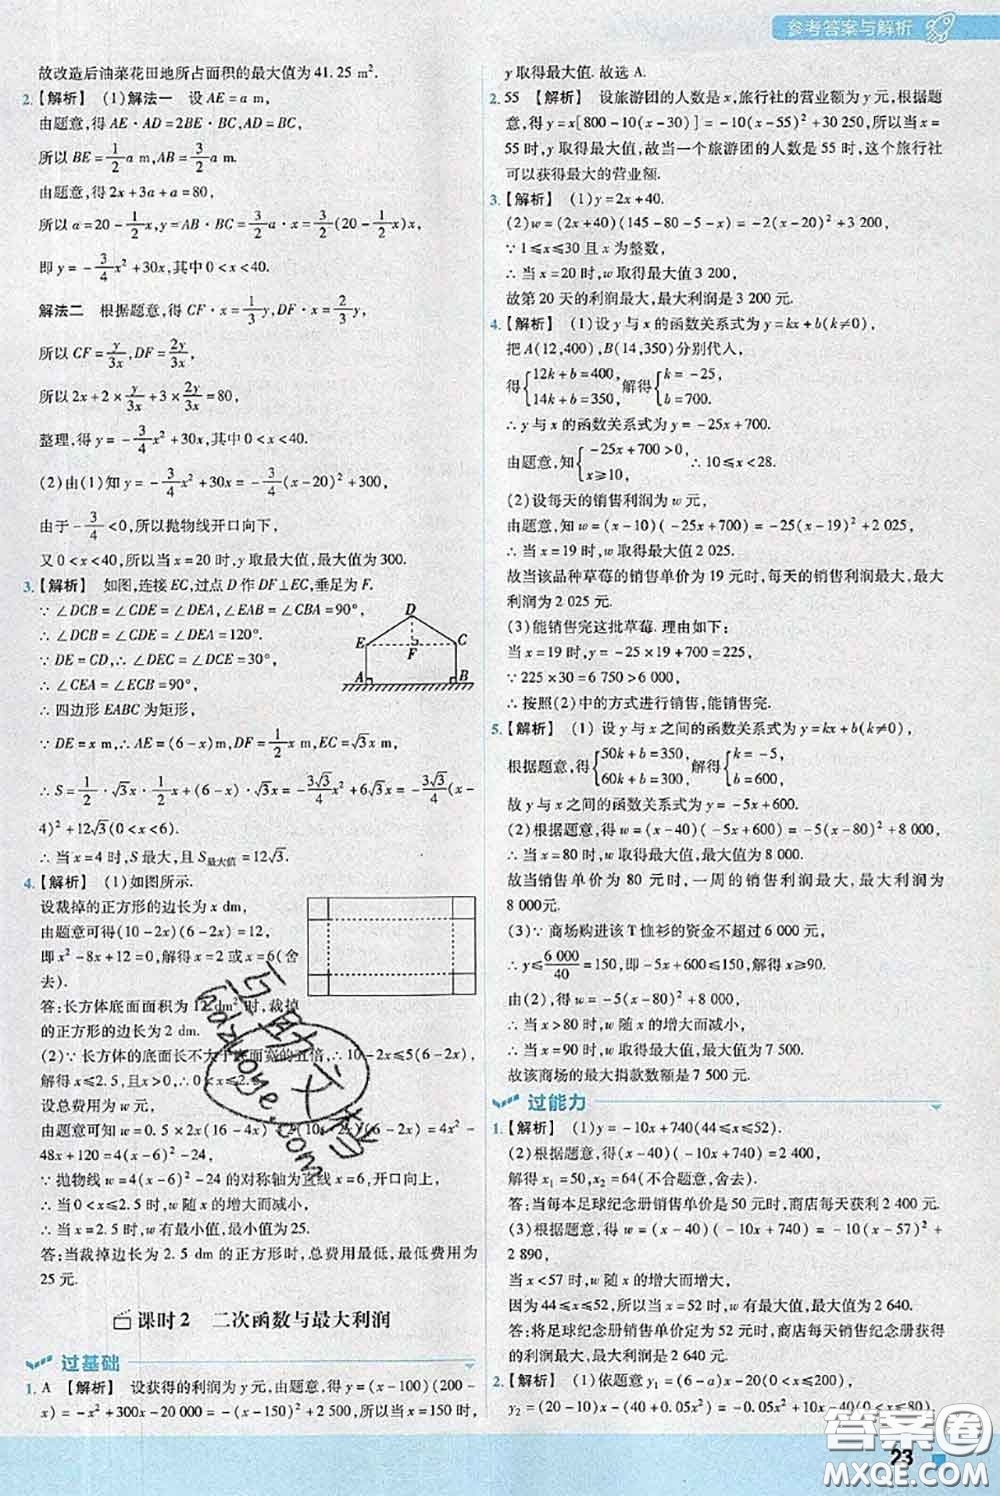 参考答案与解析
故改造后油菜花田地所占面积的最大值为 41.25 m².
2.【解析】 (1)解法一 设 AE=a m,
由题意,得 AE·AD=2BE·BC,AD=BC,
所以 BE=1/2 a m,AB=3/2 a m.
由题意,得 2x+3a+a=80,
所以 a=20-1/2x,y=AB·BC=3/2a·x=3/2(20-1/2x)x,
即 y=-3/4x²+30x,其中 0<x<40.
解法二 根据题意,得 CF·x=1/3y,DF·x=2/3y,
所以 CF=y/3x,DF=2y/3x,
所以 2x+2×y/3x+3×2y/3x=80,
整理,得 y=-3/4x²+30x,其中 0<x<40.
(2)由(1)知 y=-3/4x²+30x=-3/4(x-20)²+300,
由于-3/4<0,所以抛物线开口向下,
又 0<x<40,所以当 x=20 时,y 取最大值,最大值为 300.
3.【解析】 如图,连接 EC,过点 D 作 DF⊥EC,垂足为 F.
∵∠DCB=∠CDE=∠DEA,∠EAB=∠CBA=90°,
∴∠DCB=∠CDE=∠DEA=120°.
∵DE=CD,∴∠DEC=∠DCE=30°,
∴∠CEA=∠ECB=90°,
∴四边形 EABC 为矩形,
D
E
F
C
A
B
∵DE=x m,∴AE=(6-x)m,DF=1/2x m,EC=√3x m,
∴S=1/2·√3x·1/2x+(6-x)·√3x=-3√3/4x²+6√3x=-3√3/4(x-
4)²+12√3(0<x<6).
∴当 x=4 时,S 最大,且 S最大值=12√3.
4.【解析】 (1)如图所示.
设裁掉的正方形的边长为 x dm,
由题意可得(10-2x)(6-2x)=12,
即 x²-8x+12=0,解得 x=2 或 x=6(舍
去).
答:长方体底面面积为 12 dm² 时,裁掉
的正方形的边长为 2 dm.
(2)∵长方体的底面长不大于底面宽的五倍,∴10-2x≤5(6-2x),
解得 x≤2.5,∴0<x≤2.5.
设总费用为 w 元,
由题意可知 w=0.5×2x(16-4x)+2(10-2x)(6-2x)=4x²-
48x+120=4(x-6)²-24,
∵抛物线 w=4(x-6)²-24 的对称轴为直线 x=6,开口向上,
∴当 0<x≤2.5 时,w 随 x 的增大而减小,
∴当 x=2.5 时,w 有最小值,最小值为 25.
答:当裁掉边长为 2.5 dm 的正方形时,总费用最低,最低费用为
25 元.
课时 2 二次函数与最大利润
过基础
1. A 【解析】 设获得的利润为 y 元,由题意,得 y=(x-100)(200-
x)=-x²+300x-20 000=-(x-150)²+2 500,所以当 x=150 时,
y 取得最大值. 故选 A.
2. 55 【解析】 设旅游团的人数是 x,旅行社的营业额为 y 元,根据题
意,得 y=x[800-10(x-30)]=-10(x-55)²+30 250,所以当 x=
55 时,y 取得最大值,故当一个旅游团的人数是 55 时,这个旅行社
可以获得最大的营业额.
3.【解析】 (1)y=2x+40.
(2)w=(2x+40)(145-80-5-x)=-2(x-20)²+3 200,
∵1≤x≤30 且 x 为整数,
∴当 x=20 时,w 取得最大值 3 200,
故第 20 天的利润最大,最大利润是 3 200 元.
4.【解析】 (1)设 y 与 x 的函数关系式为 y=kx+b(k≠0),
把 A(12,400),B(14,350)分别代入,
得{12k+b=400, 14k+b=350, 解得{k=-25, b=700.
∴y 与 x 的函数关系式为 y=-25x+700.
由题意,知{-25x+700>0, x≥10, ∴10≤x<28.
(2)设每天的销售利润为 w 元,
由题意,知 w=(x-10)(-25x+700)=-25(x-19)²+2 025,
∴当 x=19 时,w 取最大值 2 025.
故当该品种草莓的销售单价为 19 元时,每天的销售利润最大,最大
利润为 2 025 元.
(3)能销售完这批草莓. 理由如下;
当 x=19 时,y=-25×19+700=225,
∵225×30=6 750>6 000,
∴按照(2)中的方式进行销售,能销售完.
5.【解析】 (1) 设 y 与 x 之间的函数关系式为 y=kx+b(k≠0),
根据题意,得{50k+b=350, 60k+b=300, 解得{k=-5, b=600.
故 y 与 x 之间的函数关系式为 y=-5x+600.
(2)根据题意,得 w=(x-40)(-5x+600)=-5(x-80)²+8 000,
∴当 x=80 时,w 取最大值,最大值为 8 000.
故当销售单价为 80 元时,一周的销售利润最大,最大利润为
8 000元.
(3)∵商场购进该 T 恤衫的资金不超过 6 000 元,
∴y≤6 000/40=150,即-5x+600≤150,∴x≥90,
由(2),得 w=-5(x-80)²+8 000,
∴当 x≥90 时,w 随 x 的增大而减小,
∴当 x=90 时,w 取最大值,最大值为 7 500.
故该商场的最大捐款数额是 7 500 元.
过能力
1.【解析】 (1)y=-10x+740(44≤x≤52).
(2)根据题意,得(x-40)(-10x+740)=2 400,
解得 x₁=50,x₂=64(不合题意,舍去).
答:当每本足球纪念册销售单价是 50 元时,商店每天获利 2 400 元.
(3)根据题意,得 w=(x-40)(-10x+740)=-10(x-57)²+
2 890,
当 x<57 时,w 随 x 的增大而增大,
因为 44≤x≤52,所以当 x=52 时,w 有最大值,最大值为 2 640.
答:将足球纪念册销售单价定为 52 元时,商店每天销售纪念册获得
的利润最大,最大利润是 2 640 元.
2.【解析】 (1)依题意,得 y₁=(6-a)x-20(0<x≤200),
y₂=(20-10)x-40-0.05x²=-0.05x²+10x-40(0<x≤80),
23
互助文档
hdzuoye.com
答案圈
MXQE.COM